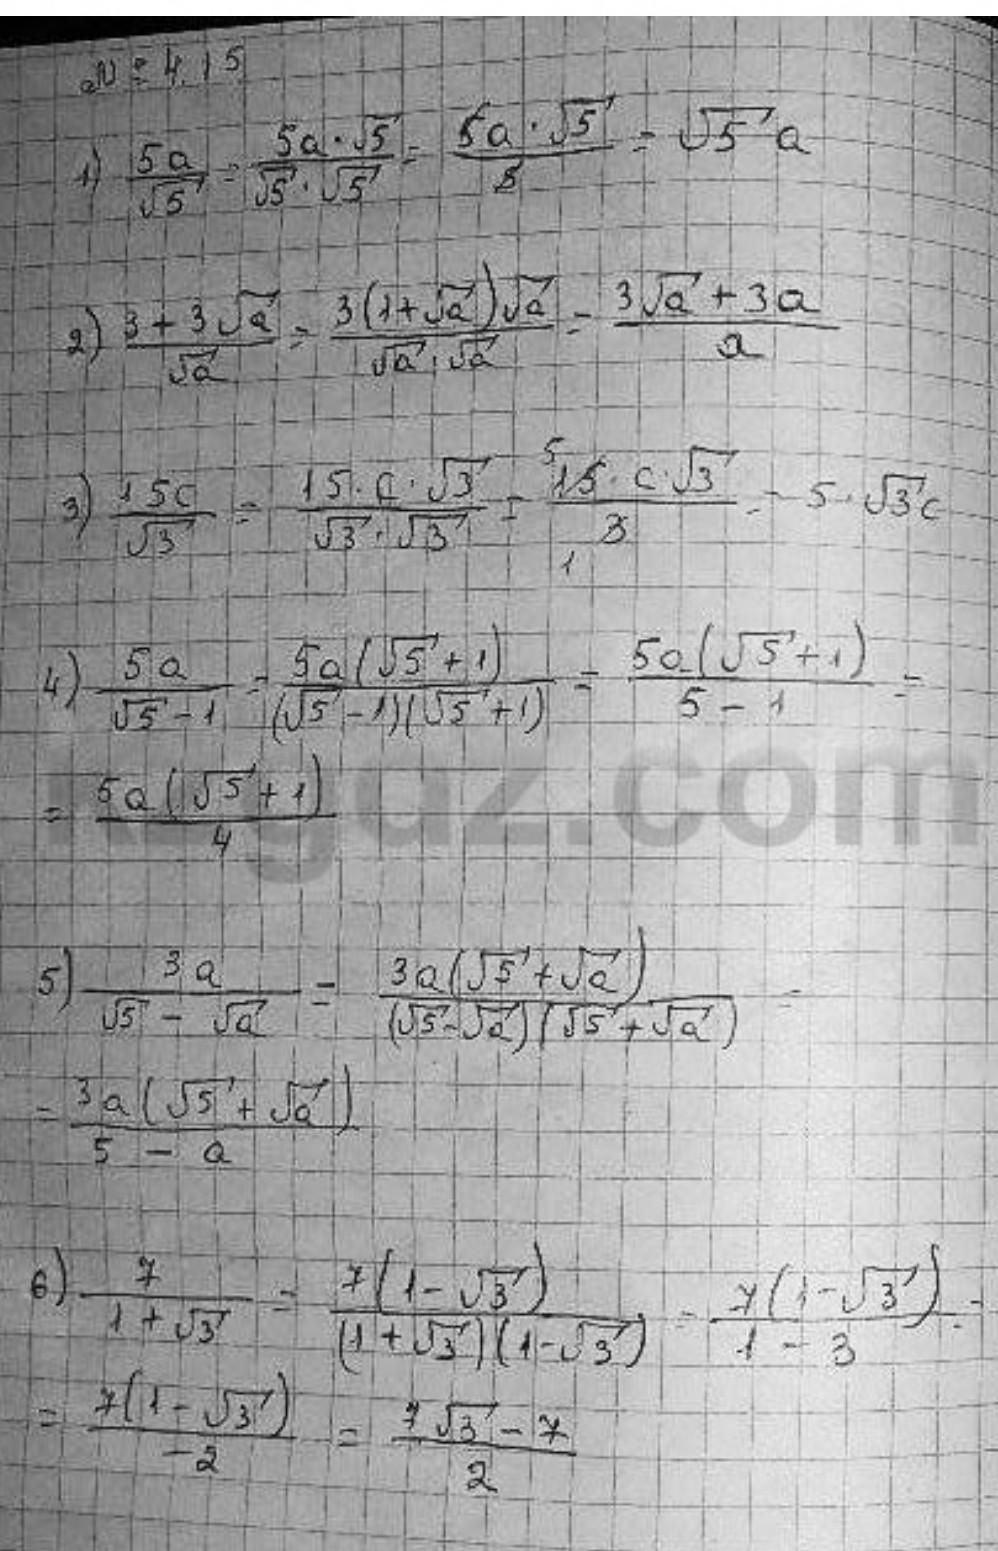 № 4.15
1) 5a/√5 = 5a·√5/√5·√5 = 5a·√5/5 = √5 a
2) 3+3√a/√a = 3(1+√a)√a/√a·√a = 3√a+3a/a
3) 15c/√3 = 15·c·√3/√3·√3 = 5 15·c·√3/3 1 = 5·√3 c
4) 5a/√5-1 = 5a(√5+1)/(√5-1)(√5+1) = 5a(√5+1)/5-1 =
= 5a(√5+1)/4
5) 3a/√5-√a = 3a(√5+√a)/(√5-√a)(√5+√a) =
= 3a(√5+√a)/5-a
6) 7/1+√3 = 7(1-√3)/(1+√3)(1-√3) = 7(1-√3)/1-3 =
= 7(1-√3)/-2 = 7√3-7/2